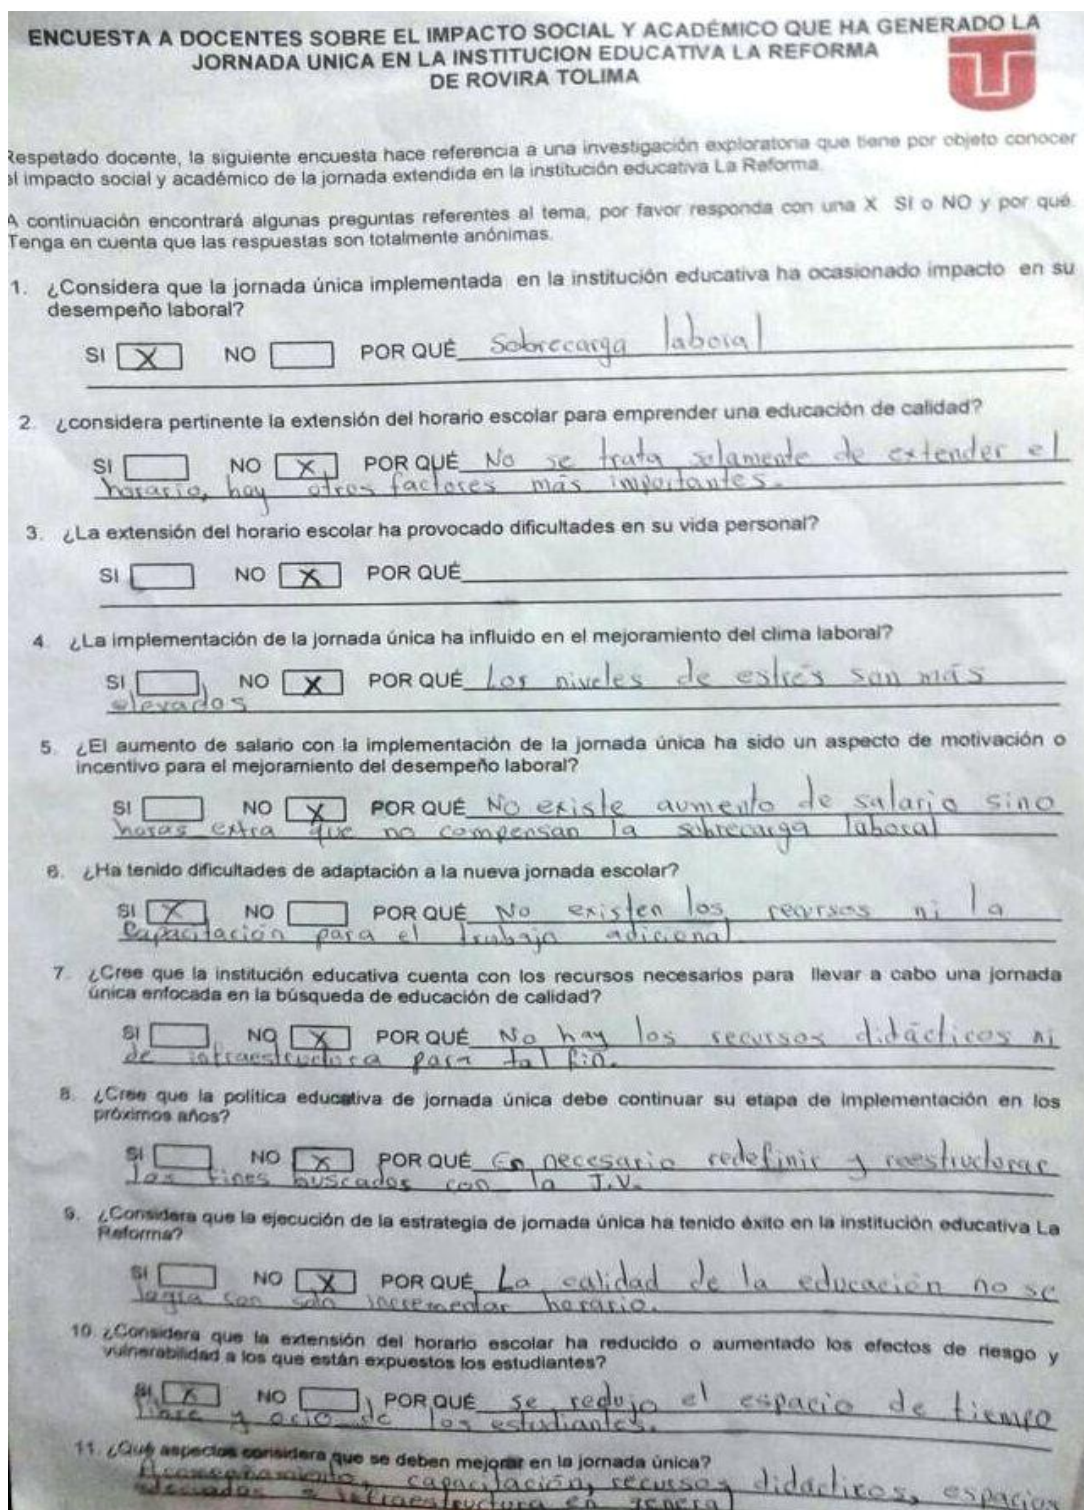 ENCUESTA A DOCENTES SOBRE EL IMPACTO SOCIAL Y ACADÉMICO QUE HA GENERADO LA
JORNADA UNICA EN LA INSTITUCION EDUCATIVA LA REFORMA
DE ROVIRA TOLIMA
Respetado docente, la siguiente encuesta hace referencia a una investigación exploratoria que tiene por objeto conocer
el impacto social y académico de la jornada extendida en la institución educativa La Reforma.
A continuación encontrará algunas preguntas referentes al tema, por favor responda con una X SI o NO y por qué.
Tenga en cuenta que las respuestas son totalmente anónimas.
1. ¿Considera que la jornada única implementada en la institución educativa ha ocasionado impacto en su
desempeño laboral?
SI X NO POR QUÉ Sobrecarga laboral
2. ¿considera pertinente la extensión del horario escolar para emprender una educación de calidad?
SI NO X POR QUÉ No se trata solamente de extender el
horario, hay otros factores más importantes.
3. ¿La extensión del horario escolar ha provocado dificultades en su vida personal?
SI NO X POR QUÉ
4. ¿La implementación de la jornada única ha influido en el mejoramiento del clima laboral?
SI NO X POR QUÉ Los niveles de estrés son más
elevados
5. ¿El aumento de salario con la implementación de la jornada única ha sido un aspecto de motivación o
incentivo para el mejoramiento del desempeño laboral?
SI NO X POR QUÉ No existe aumento de salario sino
horas extra que no compensan la sobrecarga laboral
6. ¿Ha tenido dificultades de adaptación a la nueva jornada escolar?
SI X NO POR QUÉ No existen los recursos ni la
capacitación para el trabajo adicional
7. ¿Cree que la institución educativa cuenta con los recursos necesarios para llevar a cabo una jornada
única enfocada en la búsqueda de educación de calidad?
SI NO X POR QUÉ No hay los recursos didácticos ni
de infraestructura para tal fin.
8. ¿Cree que la política educativa de jornada única debe continuar su etapa de implementación en los
próximos años?
SI NO X POR QUÉ Es necesario redefinir y reestructurar
los fines buscados con la J.U.
9. ¿Considera que la ejecución de la estrategia de jornada única ha tenido éxito en la institución educativa La
Reforma?
SI NO X POR QUÉ La calidad de la educación no se
logra con solo incrementar horario.
10. ¿Considera que la extensión del horario escolar ha reducido o aumentado los efectos de riesgo y
vulnerabilidad a los que están expuestos los estudiantes?
SI X NO POR QUÉ Se redujo el espacio de tiempo
libre y ocio de los estudiantes.
11. ¿Qué aspectos considera que se deben mejorar en la jornada única?
Acompañamiento, capacitación, recursos didácticos, espacios
adecuados e infraestructura en general